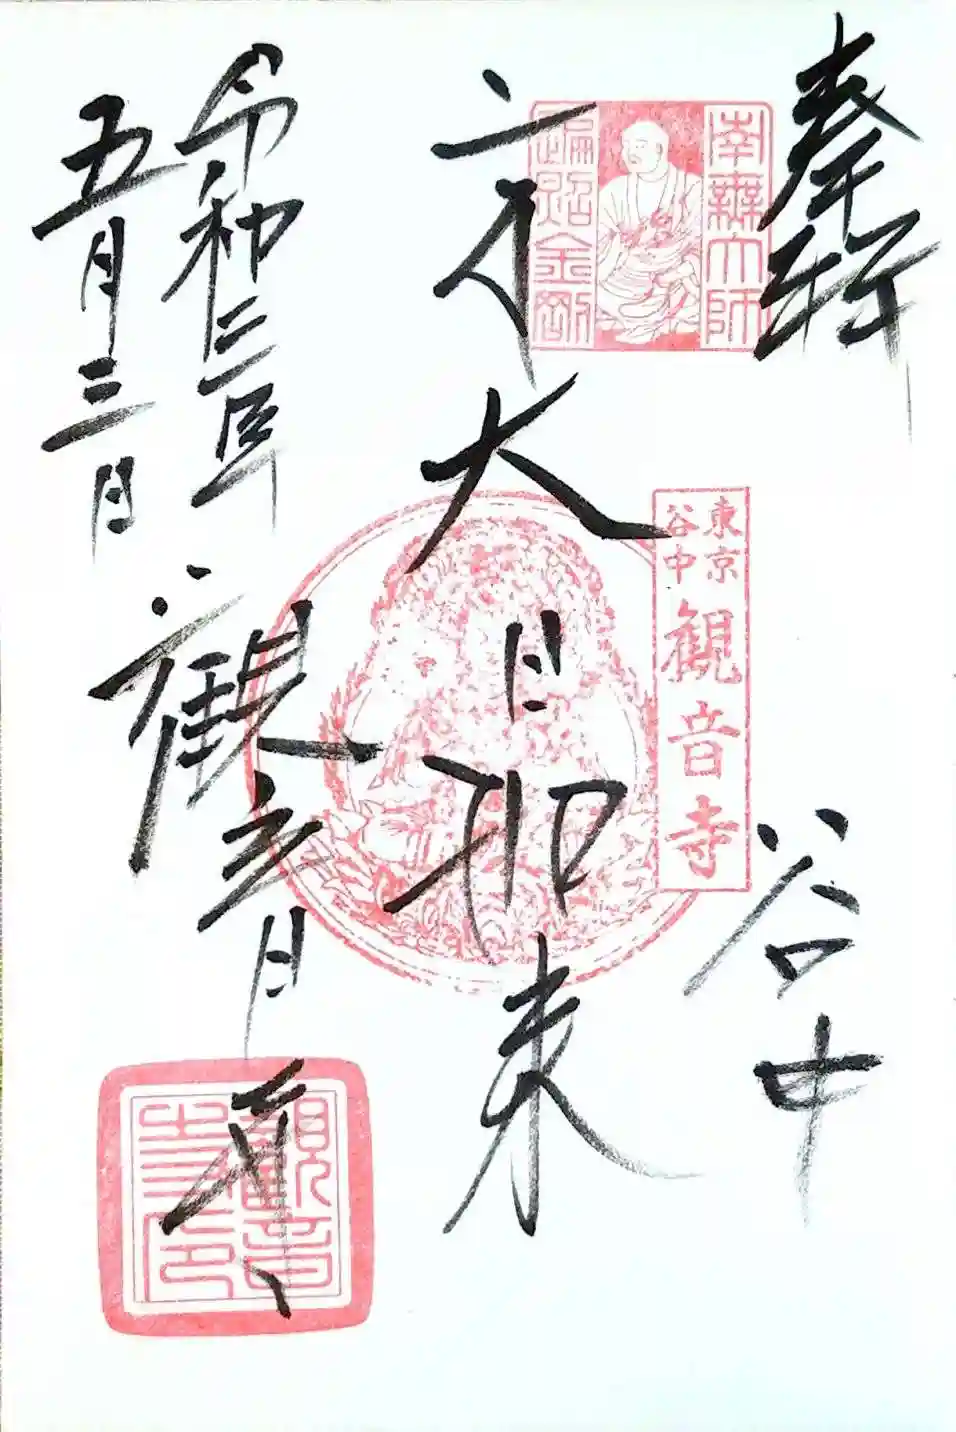 奉拝
谷中
南無大師
遍照金剛
東京
谷中
観音寺
大日如来
令和三年
五月三日
観音寺
觀音
寺印